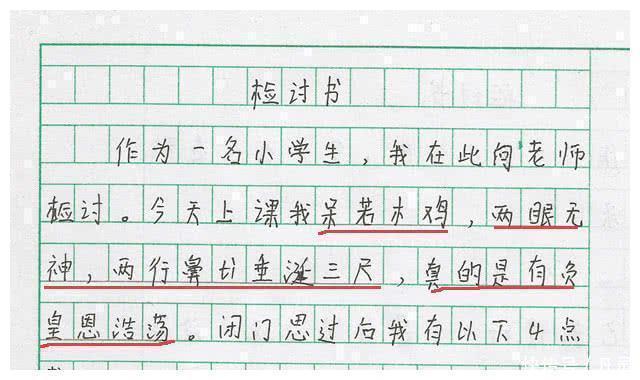 检讨书
作为一名小学生，我在此向老师
检讨。今天上课我呆若木鸡，两眼无
神，两行鼻切垂涎三尺，真的是有负
皇恩浩荡。闭门思过后我有以下4点